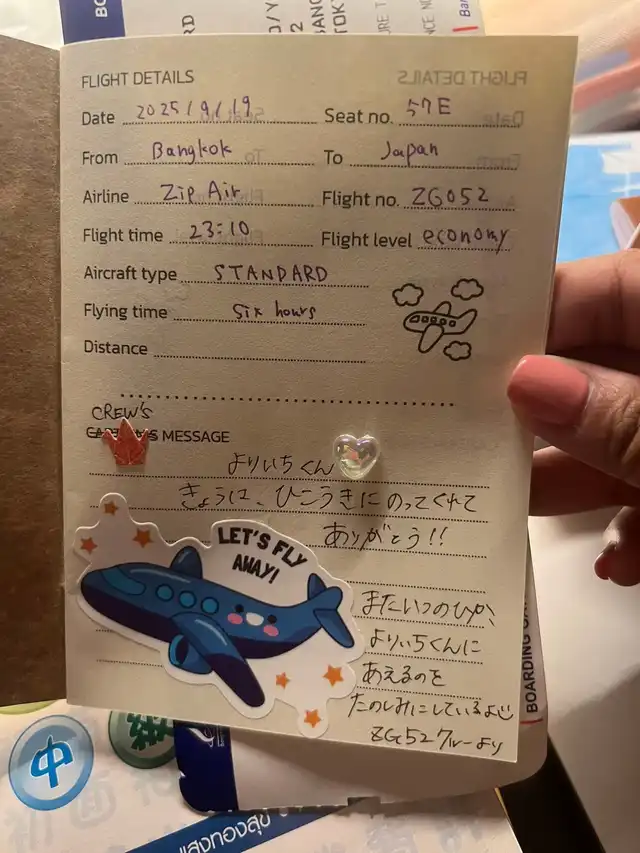 FLIGHT DETAILS
Date 2025/9/19 Seat no. 57E
From Bangkok To Japan
Airline Zip Air Flight no. ZG052
Flight time 23:10 Flight level economy
Aircraft type STANDARD
Flying time six hours
Distance
CREW'S
MESSAGE
よりいちくん
きょうは、ひこうきにのってくれて
ありがとう!!
LET'S FLY
AWAY!
またいつのひか、
よりいちくんに
あえるのを
たのしみにしているよ
ZG52クルーより
BOARDING
中
แสงทองสุข